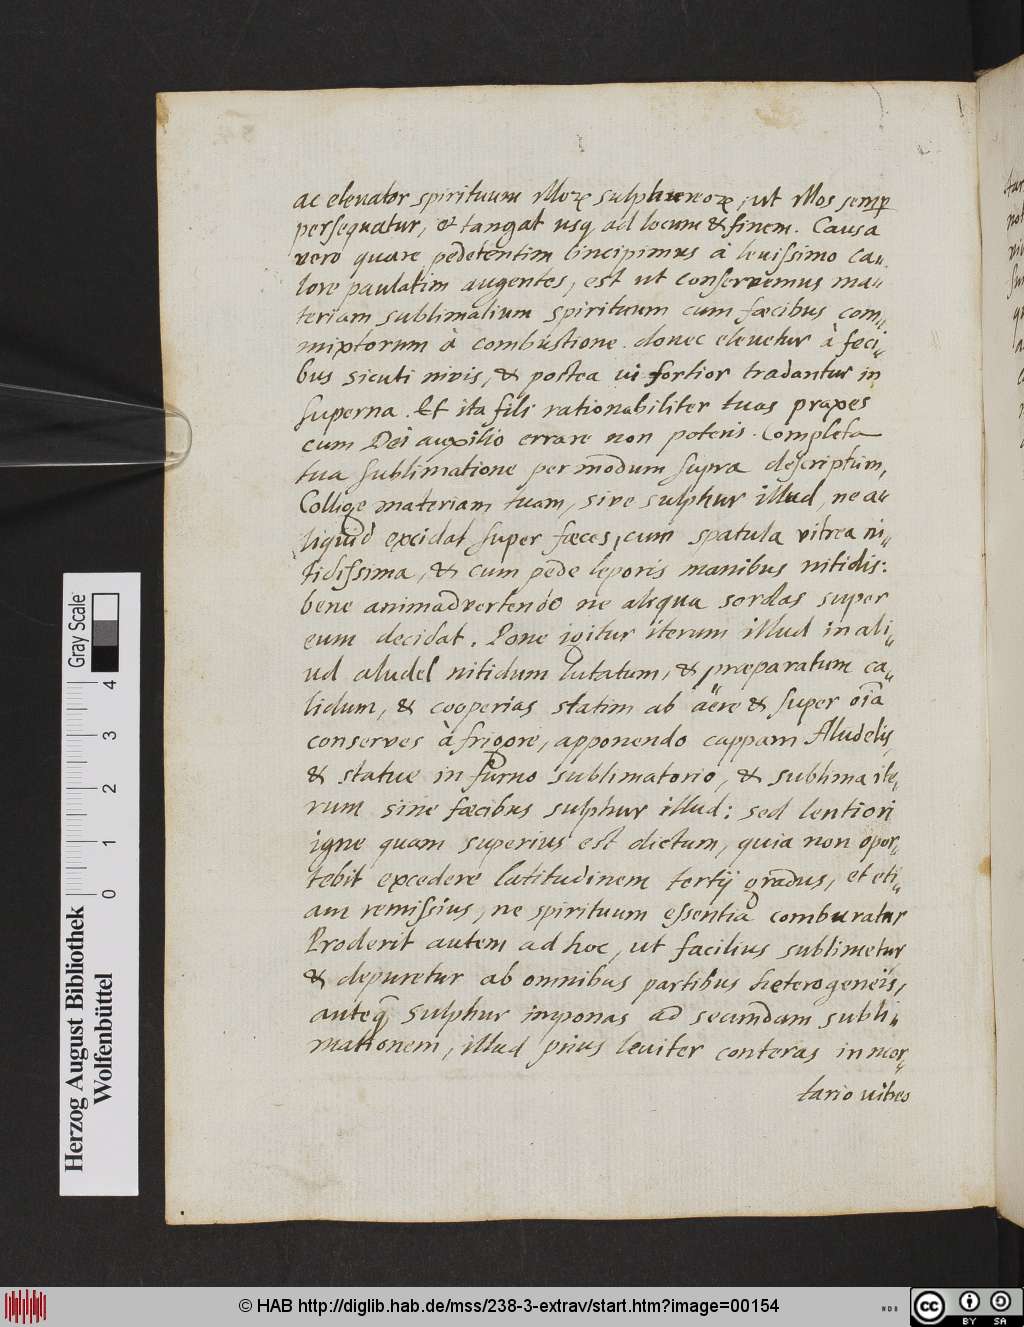 ac elevator spirituum illorꝝ sulphureorꝝ, ut illos semꝑ
persequatur, & tangat usq, ad locum & finem. Causa
vero quare pedetentim incipimus à levissimo ca„
lore paulatim augentes, est ut conservemus ma„
teriam sublimalium spirituum cum fæcibus com„
mixtorum à combustione donec elevetur à feci„
bus sicuti nivis, & postea vi fortior tradantur in
superna. Et ita fili rationabiliter tuas praxes
cum Dei auxilio errare non poteris. Completa
tua sublimatione per modum supra descriptum,
Collige materiam tuam, sive sulphur illud, ne a„
liquid excidat super fæces, cum spatula vitrea ni„
tidissima, & cum pede leporis manibus nitidis:
bene animadvertendo ne aliqua sordas super
eum decidat. Pone igitur iterum illud in ali„
ud aludel nitidum lutatum, & præparatum ca„
lidum, & cooperias statim ab aëre & super oīa
conserves à frigore, apponendo cappam Aludelis,
& statue in furno sublimatorio, & sublima ite„
rum sine fæcibus sulphur illud: sed lentiori
igne quam superius est dictum, quia non opor„
tebit excedere latitudinem tertij gradus, et eti„
am remissius, ne spirituum essentia comburatur
Proderit autem ad hoc, ut facilius sublimetur
& depuretur ab omnibus partibus heterogeneis,
anteq̃ sulphur imponas ad secundam subli„
mationem, illud prius leviter conteras in mor„
tario vitreo
Herzog August Bibliothek
Wolfenbüttel
Gray Scale
0 1 2 3 4
© HAB http://diglib.hab.de/mss/238-3-extrav/start.htm?image=00154
NDB
cc BY SA